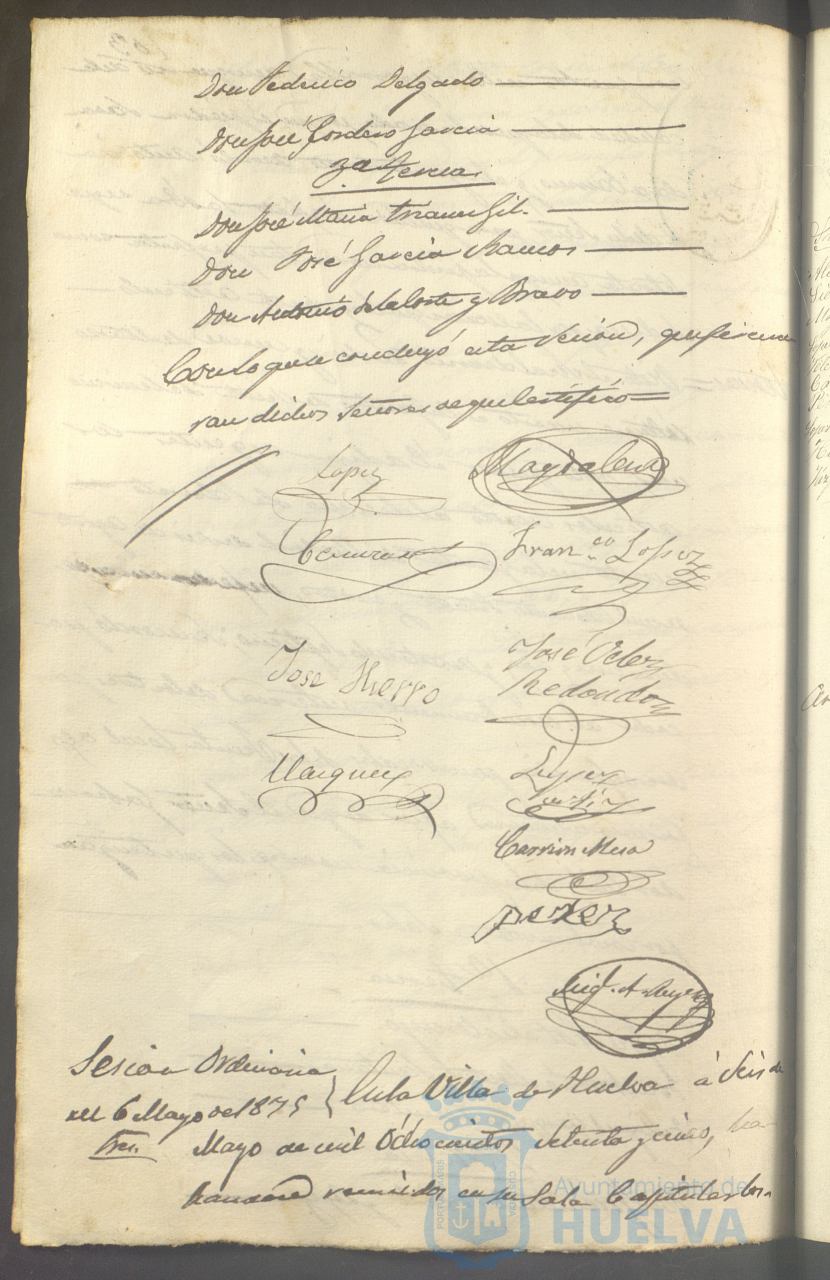 Don Federico Delgado
Don José Cordero Garcia
3.ª Tercia
Don José Maria Triano Gil.
Don José Garcia Ramos
Don Antonio de la Corte y Bravo
Con lo que se concluyó esta Sesion, que firma
ran dichos Señores de que Certifico=
Lopez
Magdalena
Fran.co Lopez
Jose Hierro
Jose Velez
Redondo
Marquez
Lopez
Ortiz
Carrion Mesa
Perez
Mig. A.
Sesion Ordinaria
del 6 Mayo de 1875
En la Villa de Huelva á Seis de
Mayo de mil Ochocientos Setenta y cinco, ha
reunidos en su Sala Capitular los
PORTUS MARIS
CUSTODIA
Ayuntamiento de
HUELVA